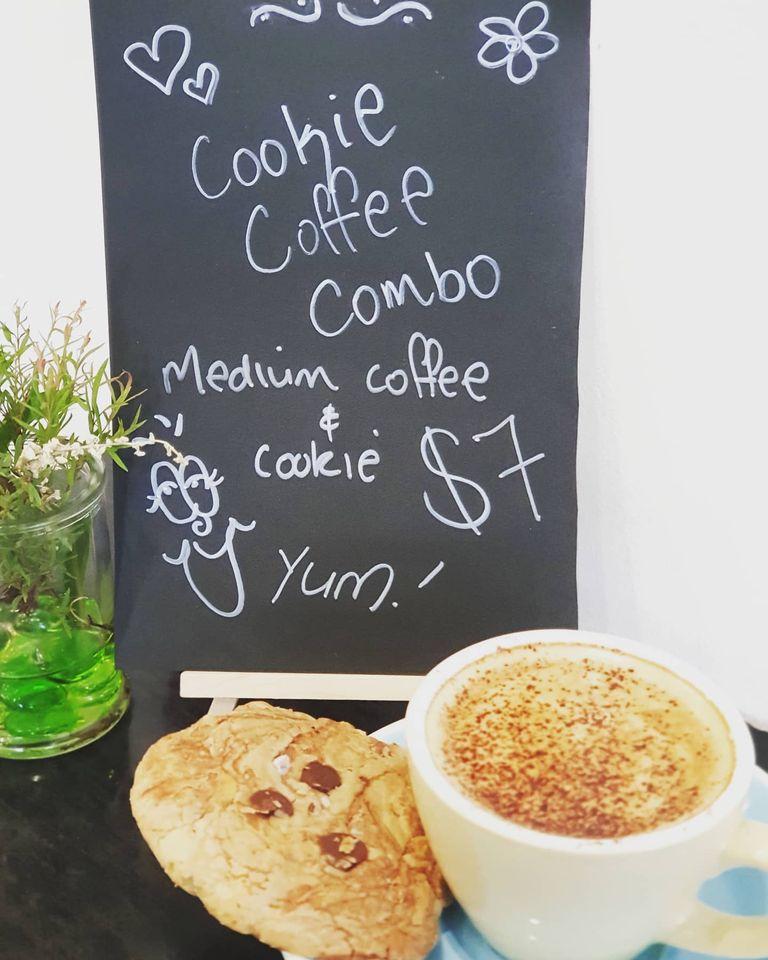 Cookie
Coffee
Combo
Medium coffee
&
cookie $7
Yum!